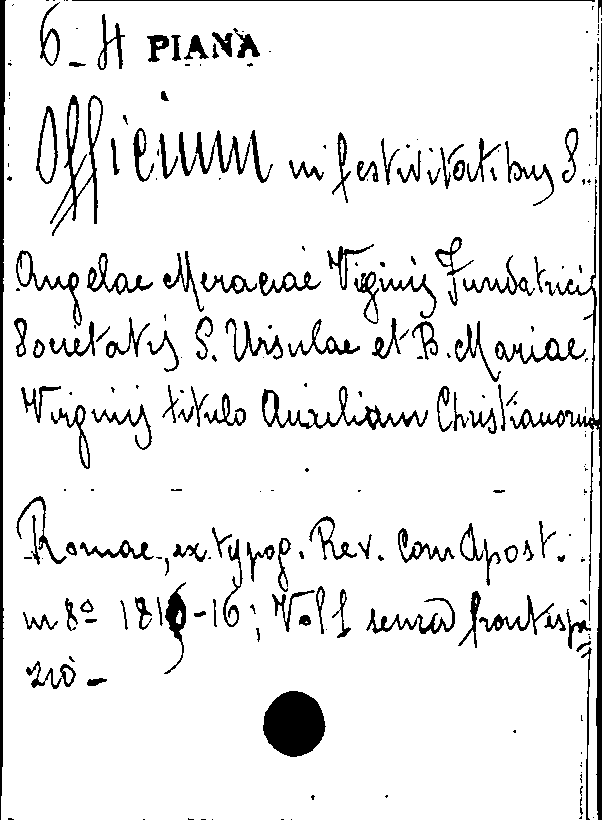 6-H PIANA
Officium in festivitatibus S.
Angelae Meraciae Virginis Fundatricis
Societatis S. Ursulae et B. Mariae
Virginis titulo Auxilium Christianorum
Romae, ex typog. Rev. Cam Apost.
in 8º -16; Vol 1 senza frontespi
zio-